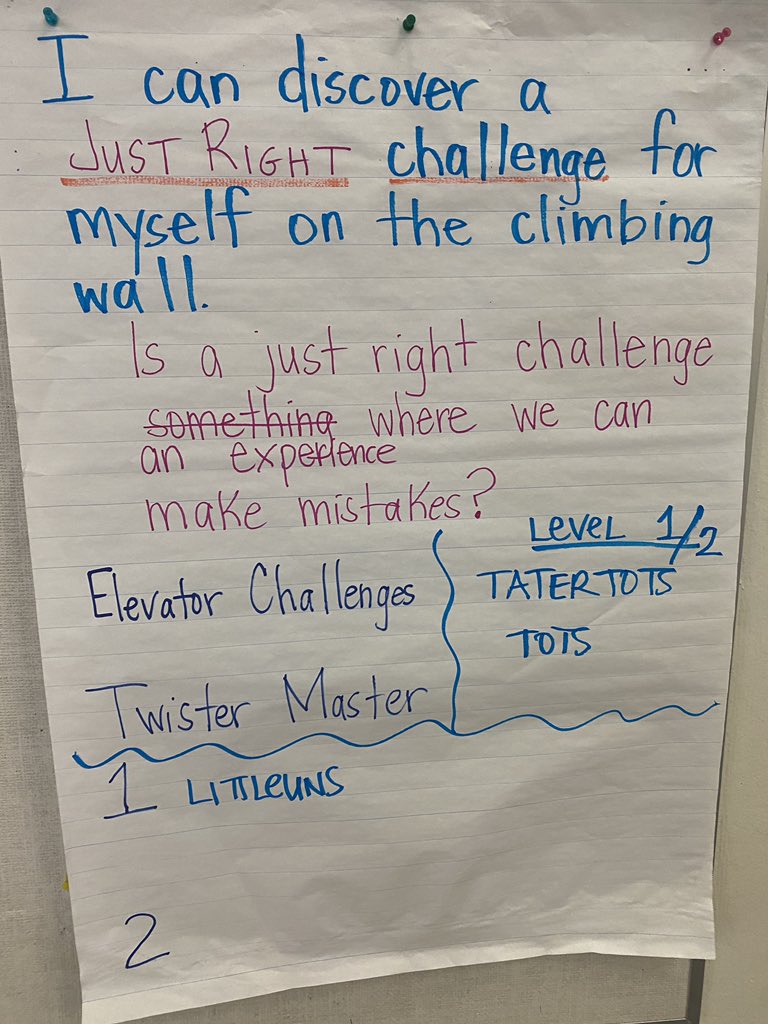 I can discover a
JUST RIGHT challenge for
myself on the climbing
wall.
Is a just right challenge
something where we can
an experience
make mistakes?
Elevator Challenges
Twister Master
LEVEL 1/2
TATERTOTS
TOTS
1 LITTLEUNS
2